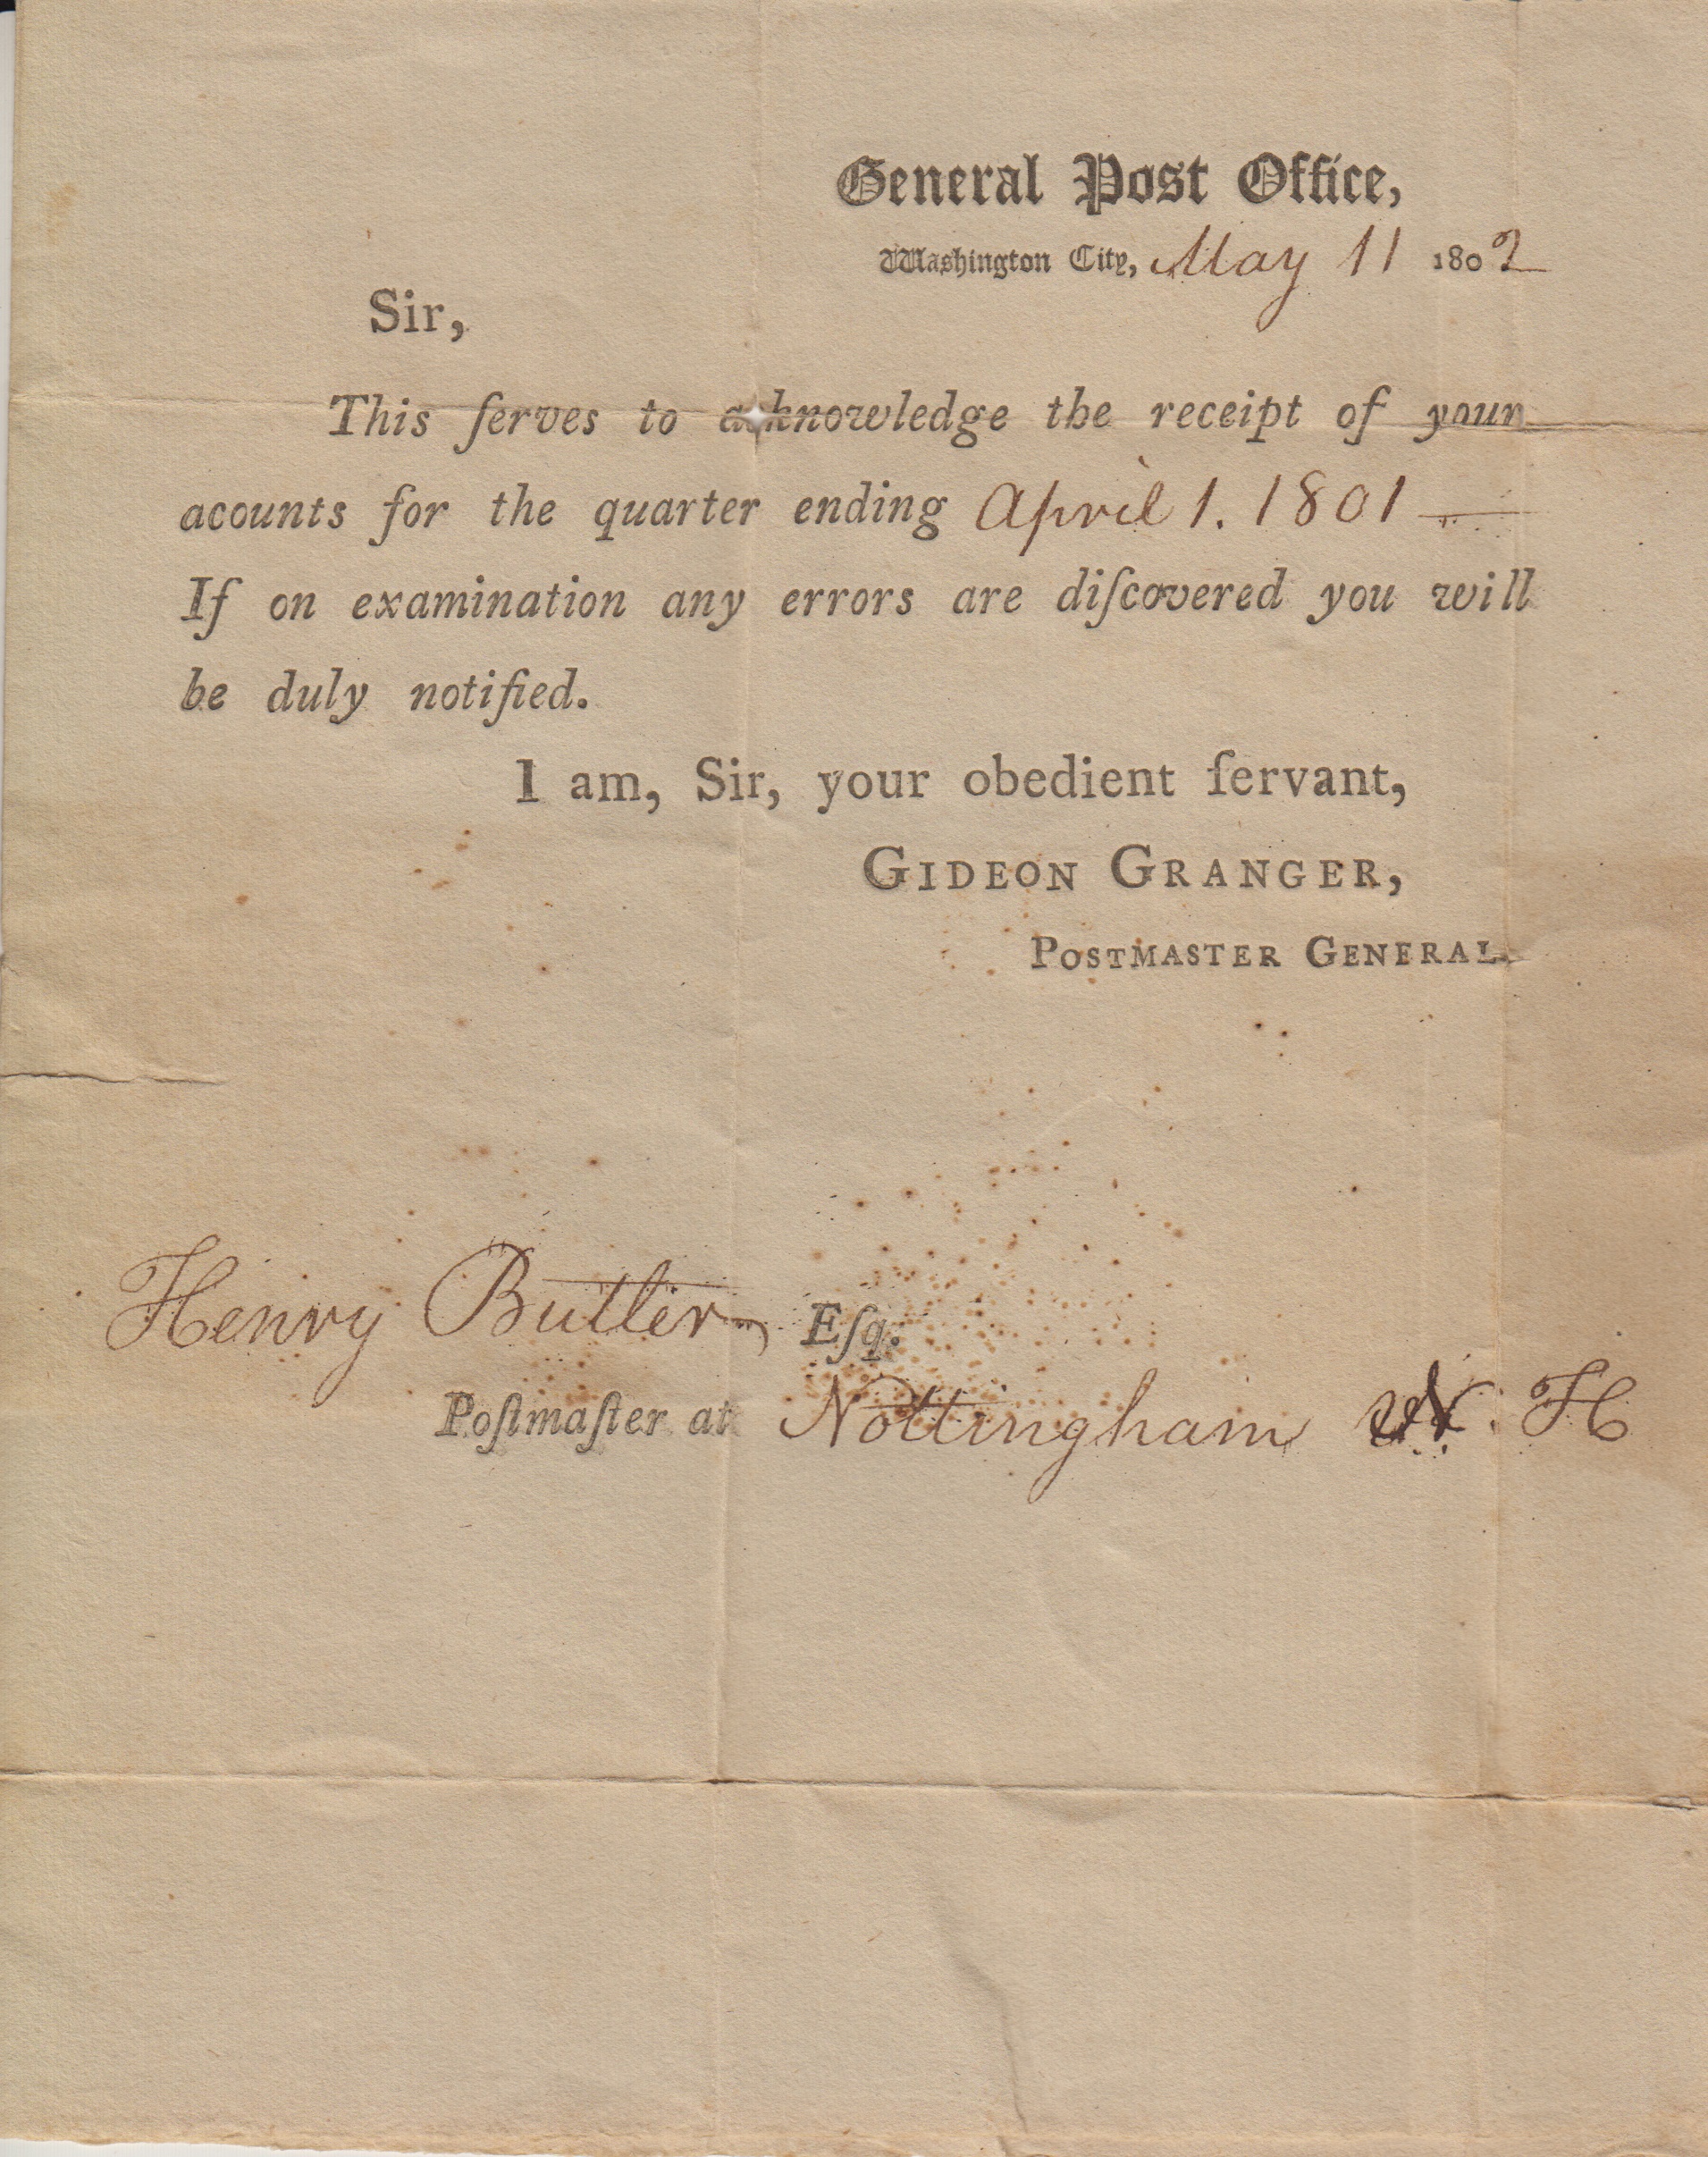 General Post Office,
Washington City, May 11 1802
Sir,
This ſerves to acknowledge the receipt of your
acounts for the quarter ending April 1. 1801 —
If on examination any errors are diſcovered you will
be duly notified.
I am, Sir, your obedient ſervant,
GIDEON GRANGER,
POSTMASTER GENERAL.
Henry Butler Eſq.
Poſtmaſter at Nottingham N. H